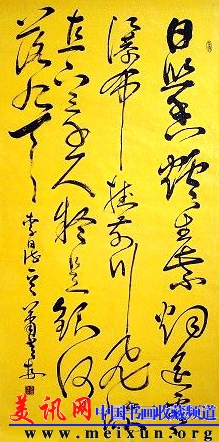 日照香爐生紫烟遥看
瀑布挂前川飛流
直下三千尺疑是銀河
落九天
李白诗
美讯网 中国书画收藏频道
www.meixun.org